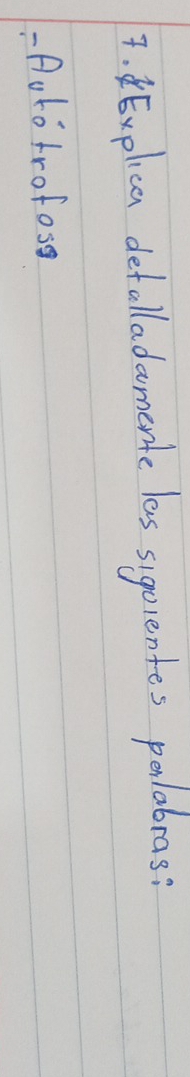 7. Explica detalladamente las siguientes palabras:
- Autótrofos